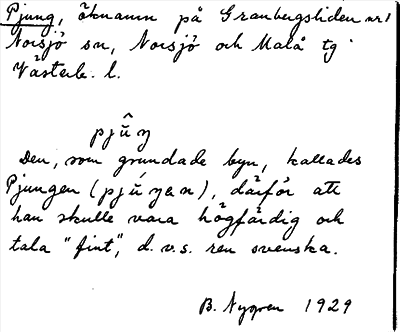 Pjung, öknamn på Granbergsliden nr 1
Norsjö sn, Norsjö och Malå tg
Västerb. l.
pjŋ̂
Den, som grundade byn, kallades
Pjungen (pjúŋen), därför att
han skulle vara högfärdig och
tala "fint", d.v.s. ren svenska.
B. Nygren 1929